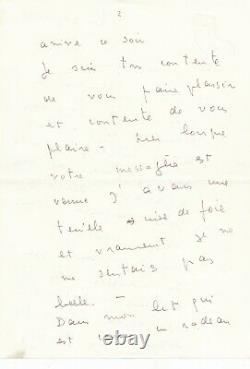 2
arrive ce soir
Je suis très contente
de vous faire plaisir
et contente de vous
plaire - hier lorsque
votre message est
venue j'avais une
de foie
et vraiment je ne
me sentais pas
belle. -
Dans mon lit qui
est un radeau